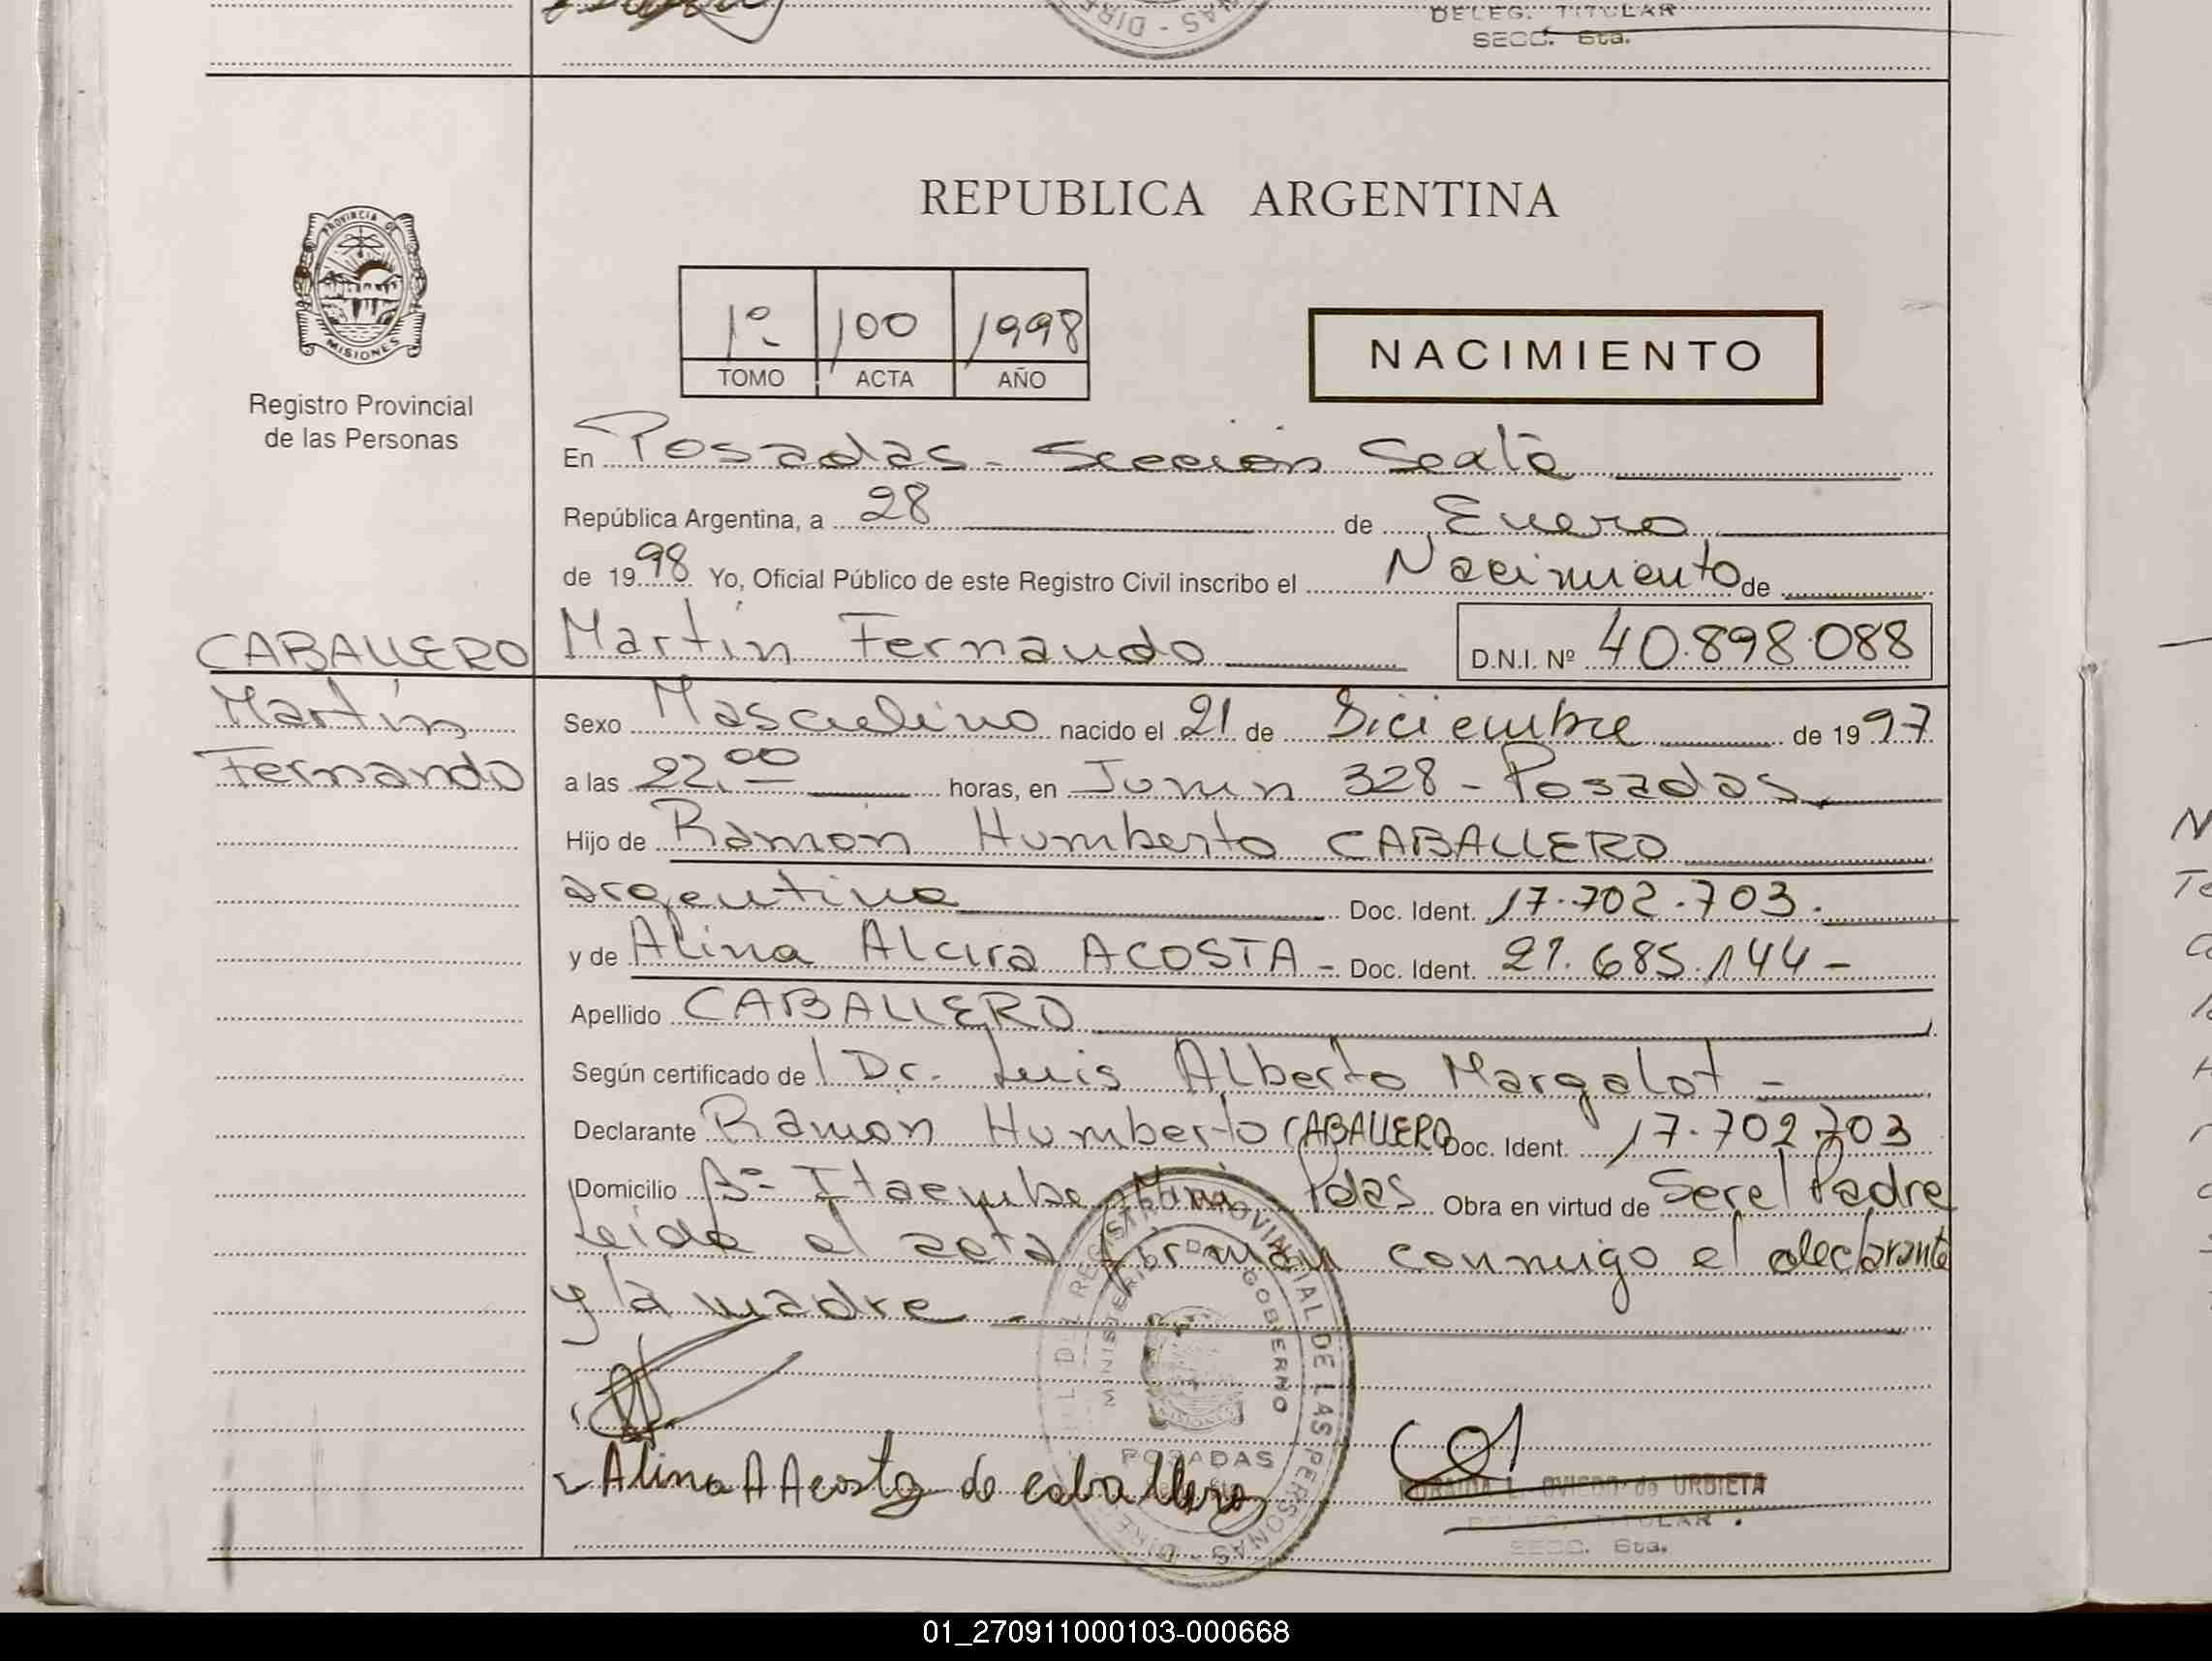 DIRE - NAS
DELEG. TITULAR
SECC. 6ta.
PROVINCIA DE
MISIONES
Registro Provincial
de las Personas
REPUBLICA ARGENTINA
1º 100 1998
TOMO ACTA AÑO
NACIMIENTO
En Posadas - Sección Sexta
República Argentina, a 28 de Enero
de 1998 Yo, Oficial Público de este Registro Civil inscribo el Nacimiento de
CABALLERO
Martín
Fernando
Martín Fernando D.N.I. Nº 40.898.088
Sexo Masculino nacido el 21 de Diciembre de 1997
a las 22.00 horas, en Junin 328 - Posadas
Hijo de Ramón Humberto CABALLERO
argentino Doc. Ident. 17.702.703.
y de Alina Alcira ACOSTA - Doc. Ident. 21.685.144 -
Apellido CABALLERO
Según certificado de Dr. Luis Alberto Margalot -
Declarante Ramón Humberto CABALLERO Doc. Ident. 17.702.703
Domicilio Bº Itaembe Mini Pdas Obra en virtud de Ser el Padre
Leída el acta firman conmigo el declarante
y la madre -
REGISTRO PROVINCIAL DE LAS PERSONAS - DIRE
MINISTERIO DE GOBIERNO
MISIONES
POSADAS
Alina A Acosta de Caballero
OVIEDO de URBIETA
DELEG. TITULAR.
SECC. 6ta.
01_270911000103-000668